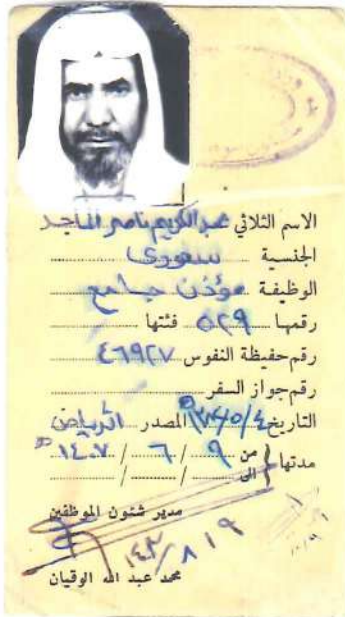 الاسم الثلاثي عبدالكريم ناصر الماجد
الجنسية سعودي
الوظيفة مؤذن جامع
رقمها ٥٢٩ فئتها
رقم حفيظة النفوس ٤٦٩٢٧
رقم جواز السفر
التاريخ المصدر الرياض
مدتها من ٩ / ٦ / ١٤٠٧ هـ
الى / /
مدير شئون الموظفين
محمد عبد الله الوقيان